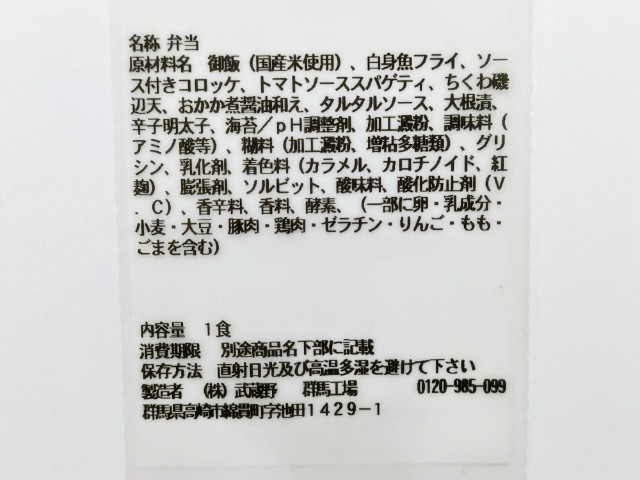 名称 弁当
原材料名　御飯（国産米使用）、白身魚フライ、ソー
ス付きコロッケ、トマトソーススパゲティ、ちくわ磯
辺天、おかか煮醤油和え、タルタルソース、大根漬、
辛子明太子、海苔／ｐＨ調整剤、加工澱粉、調味料（
アミノ酸等）、糊料（加工澱粉、増粘多糖類）、グリ
シン、乳化剤、着色料（カラメル、カロチノイド、紅
麹）、膨張剤、ソルビット、酸味料、酸化防止剤（Ｖ
．Ｃ）、香辛料、香料、酵素、（一部に卵・乳成分・
小麦・大豆・豚肉・鶏肉・ゼラチン・りんご・もも・
ごまを含む）
内容量　１食
消費期限　別途商品名下部に記載
保存方法　直射日光及び高温多湿を避けて下さい
製造者　（株）武蔵野　群馬工場　0120-985-099
群馬県高崎市綿貫町字池田１４２９－１